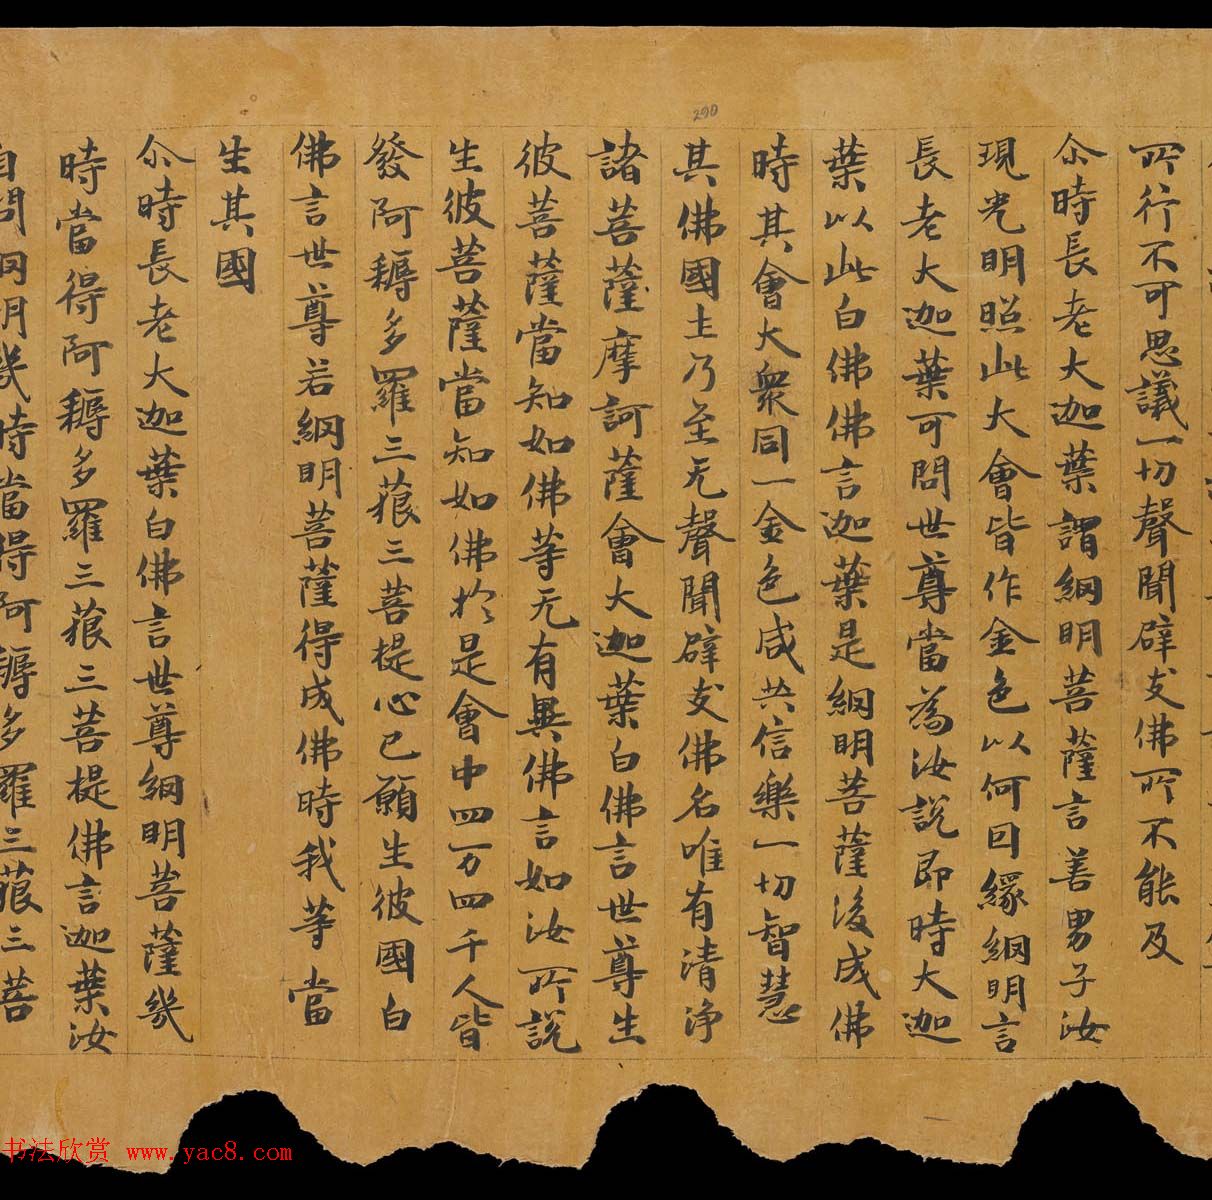 所行不可思議一切聲聞辟支佛所不能及
尒時長老大迦葉謂網明菩薩言善男子汝
現光明照此大會皆作金色以何因緣網明言
長老大迦葉可問世尊當為汝說即時大迦
葉以此白佛佛言迦葉是網明菩薩後成佛
時其會大衆同一金色咸共信樂一切智慧
其佛國土乃至无聲聞辟支佛名唯有清淨
諸菩薩摩訶薩會大迦葉白佛言世尊生
彼菩薩當知如佛等无有異佛言如汝所說
生彼菩薩當知如佛於是會中四万四千人皆
發阿耨多羅三藐三菩提心已願生彼國白
佛言世尊若網明菩薩得成佛時我等當
生其國
尒時長老大迦葉白佛言世尊網明菩薩幾
時當得阿耨多羅三藐三菩提佛言迦葉汝
自問网明幾時當得阿耨多羅三藐三菩
290
书法欣赏 www.yac8.com